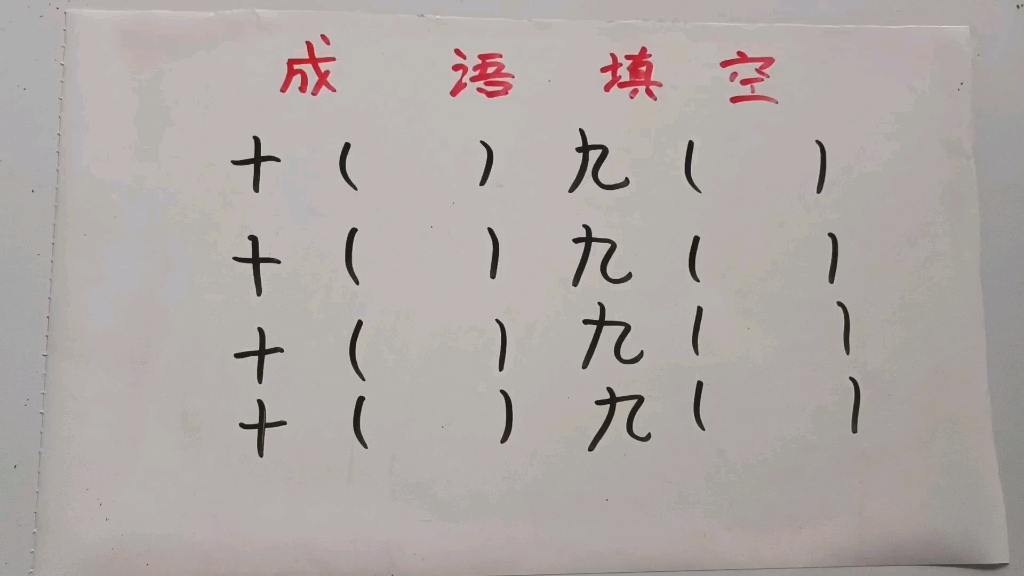 成 语 填 空
十（ ）九（ ）
十（ ）九（ ）
十（ ）九（ ）
十（ ）九（ ）